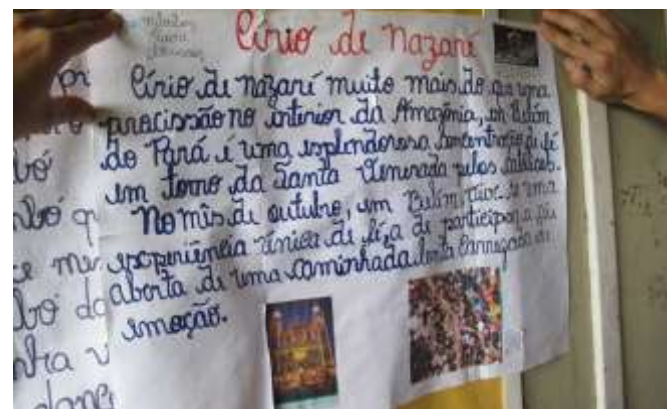 Círio de Nazaré
Círio de Nazaré muito mais do que uma
procissão no interior da Amazônia, em Belém
do Pará é uma esplendorosa concentração de fé
em torno da Santa Venerada pelos católicos.
No mês de outubro, em Belém vive-se uma
experiência única de fé, a de participar a fé
aberta de uma caminhada lenta carregada de
emoção.